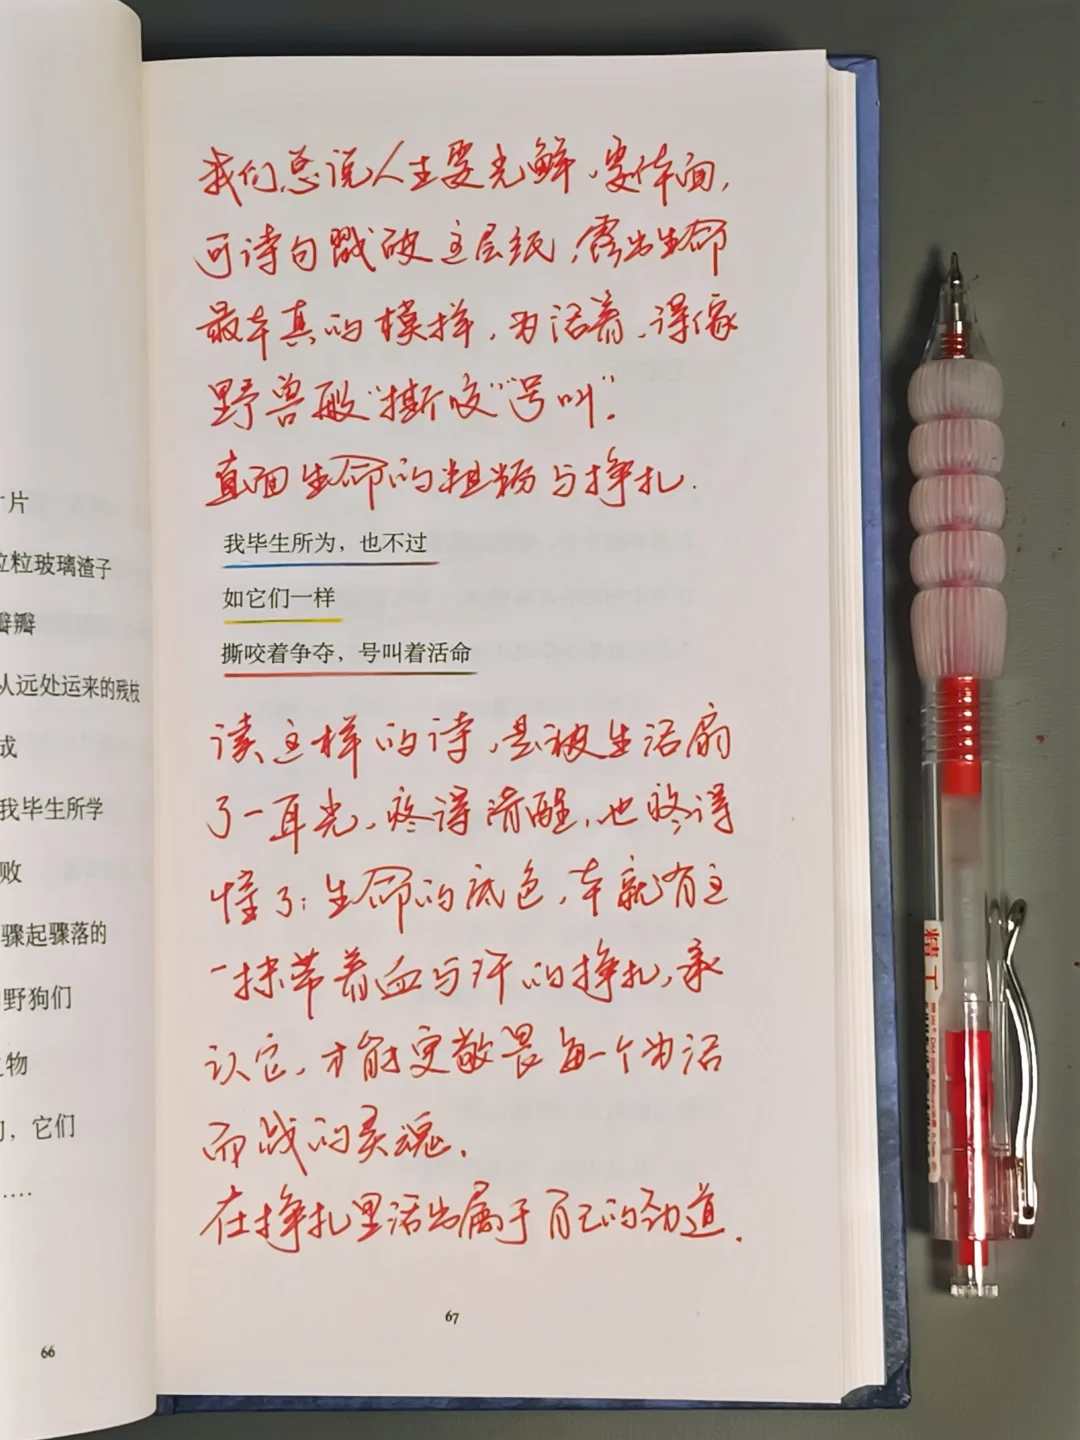 片
粒玻璃渣子
瓣瓣
从远处运来的残枝
成
我毕生所学
败
骤起骤落的
野狗们
物
，它们
……
66
我们总说人生要光鲜，要体面，
可诗句戳破这层纸，露出生命
最本真的模样，为活着，得像
野兽般“撕咬”“号叫”。
直面生命的粗粝与挣扎.
我毕生所为，也不过
如它们一样
撕咬着争夺，号叫着活命
读这样的诗，是被生活扇
了一耳光，疼得清醒，也疼得
懂了：生命的底色，本就有这
一抹带着血与汗的挣扎，承
认它，才能更敬畏每一个为活
而战的灵魂.
在挣扎里活出属于自己的劲道.
67
精工